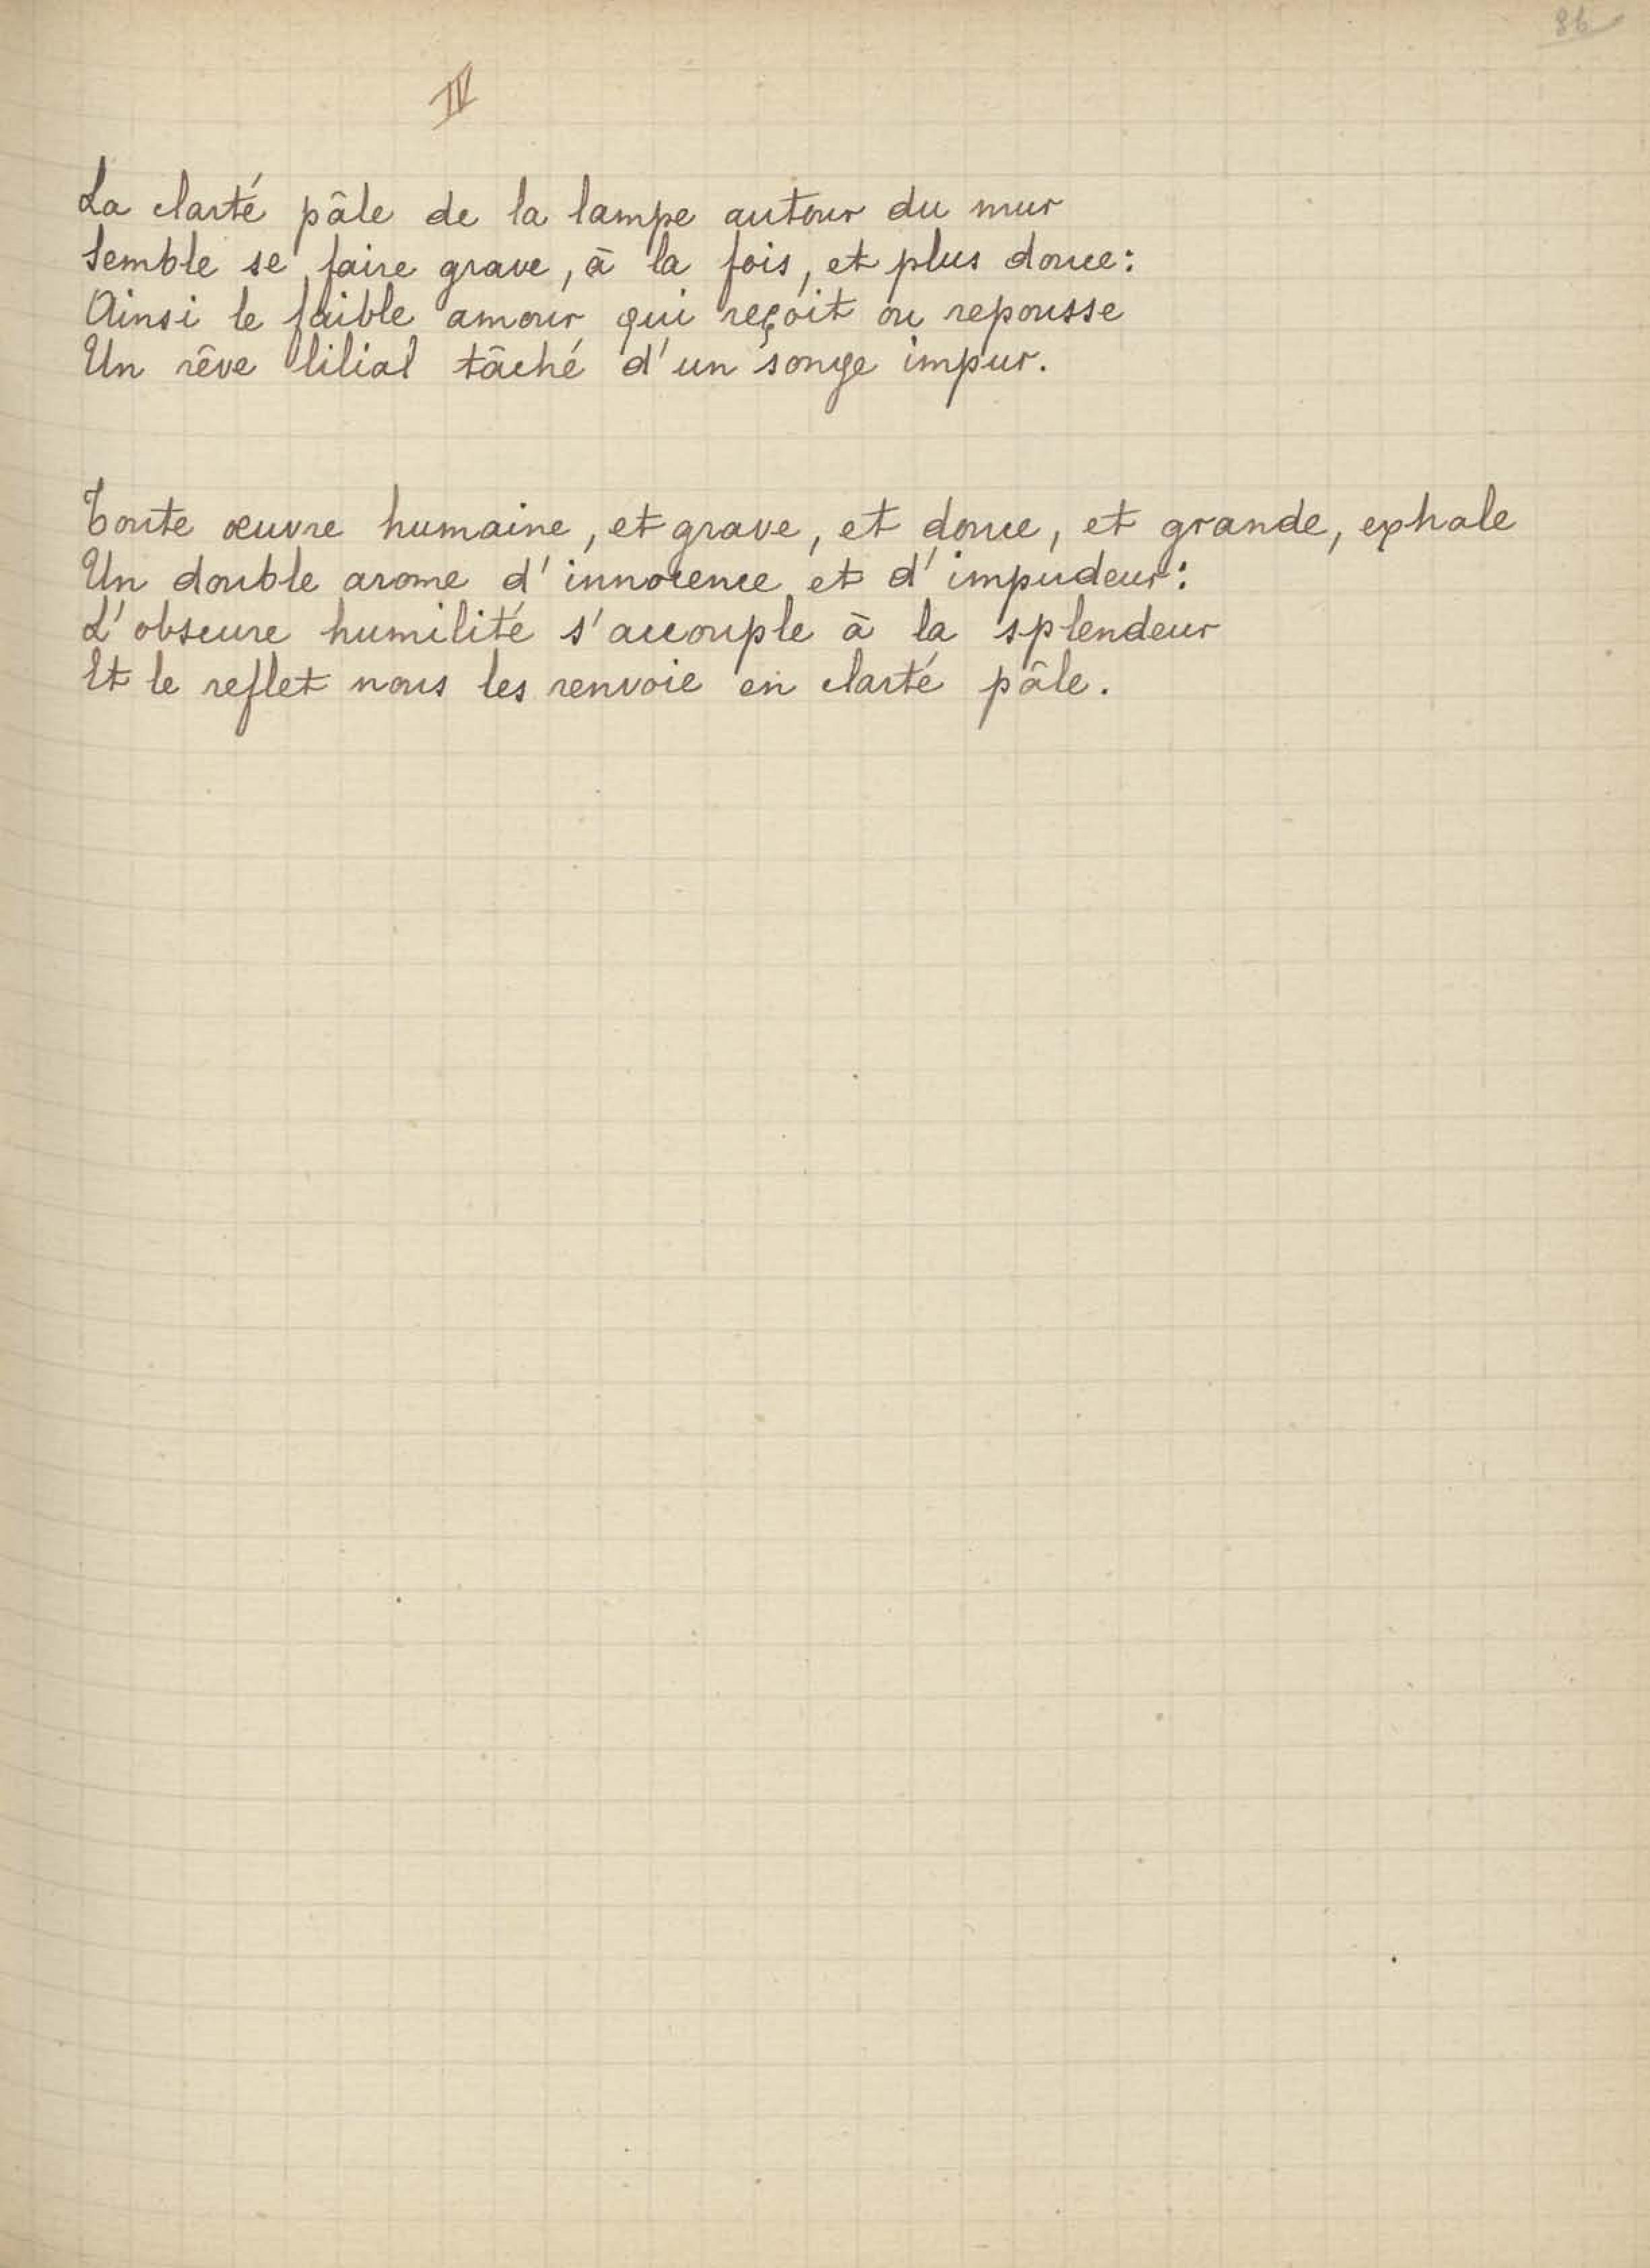 86
IV
La clarté pâle de la lampe autour du mur
Semble se faire grave, à la fois, et plus douce:
Ainsi le faible amour qui reçoit ou repousse
Un rêve lilial tâché d'un songe impur.
Toute œuvre humaine, et grave, et douce, et grande, exhale
Un double arome d'innocence et d'impudeur:
L'obscure humilité s'accouple à la splendeur
Et le reflet nous les renvoie en clarté pâle.